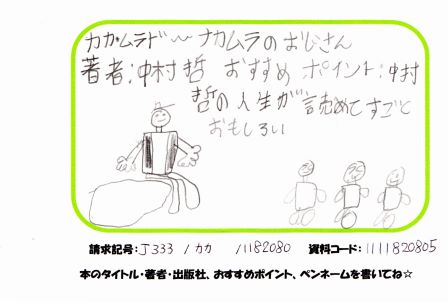 カカ・ムラド〜ナカムラのおじさん
著者:中村哲 おすすめポイント:中村
哲の人生が読めてすごく
おもしろい
請求記号:J333 /カカ /1182080 資料コード:1111820805
本のタイトル・著者・出版社、おすすめポイント、ペンネームを書いてね☆